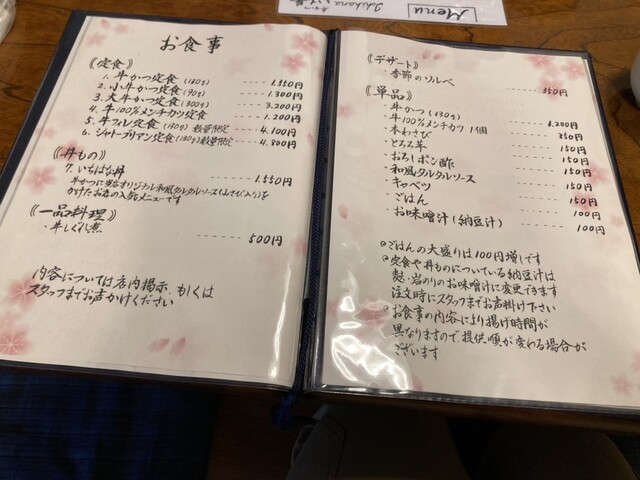 Menu
お食事
《定食》
1. 牛かつ定食 (130g) ----- 1.550円
2. 小牛かつ定食 (90g) ----- 1.300円
3. 大牛かつ定食 (300g) ----- 3.200円
4. 牛100%メンチカツ定食 ----- 1.200円
5. 牛フィレ定食 (130g) 数量限定 ----- 4.100円
6. シャトーブリアン定食 (130g) 数量限定 ----- 4.800円
《丼もの》
7. いちばな丼 ----- 1.550円
牛かつに当店オリジナル和風タルタルソース(山わさび入り)を
かけたお店の人気メニューです
《一品料理》
・牛しぐれ煮 ----- 500円
内容については店内掲示、もしくは
スタッフまでお声かけください
《デザート》
・季節のソルベ ----- 350円
《単品》
・牛かつ (130g) ----- 1.200円
・牛100%メンチカツ 1個 ----- 350円
・本わさび ----- 150円
・とろろ芋 ----- 150円
・おろしポン酢 ----- 150円
・和風タルタルソース ----- 150円
・キャベツ ----- 150円
・ごはん ----- 100円
・お味噌汁 (納豆汁) ----- 100円
◎ごはんの大盛りは100円増しです
◎定食や丼ものについている納豆汁は
麩・岩のりのお味噌汁に変更できます
注文時にスタッフまでお声掛け下さい
◎お食事の内容により揚げ時間が
異なりますので、提供順が変わる場合が
ございます